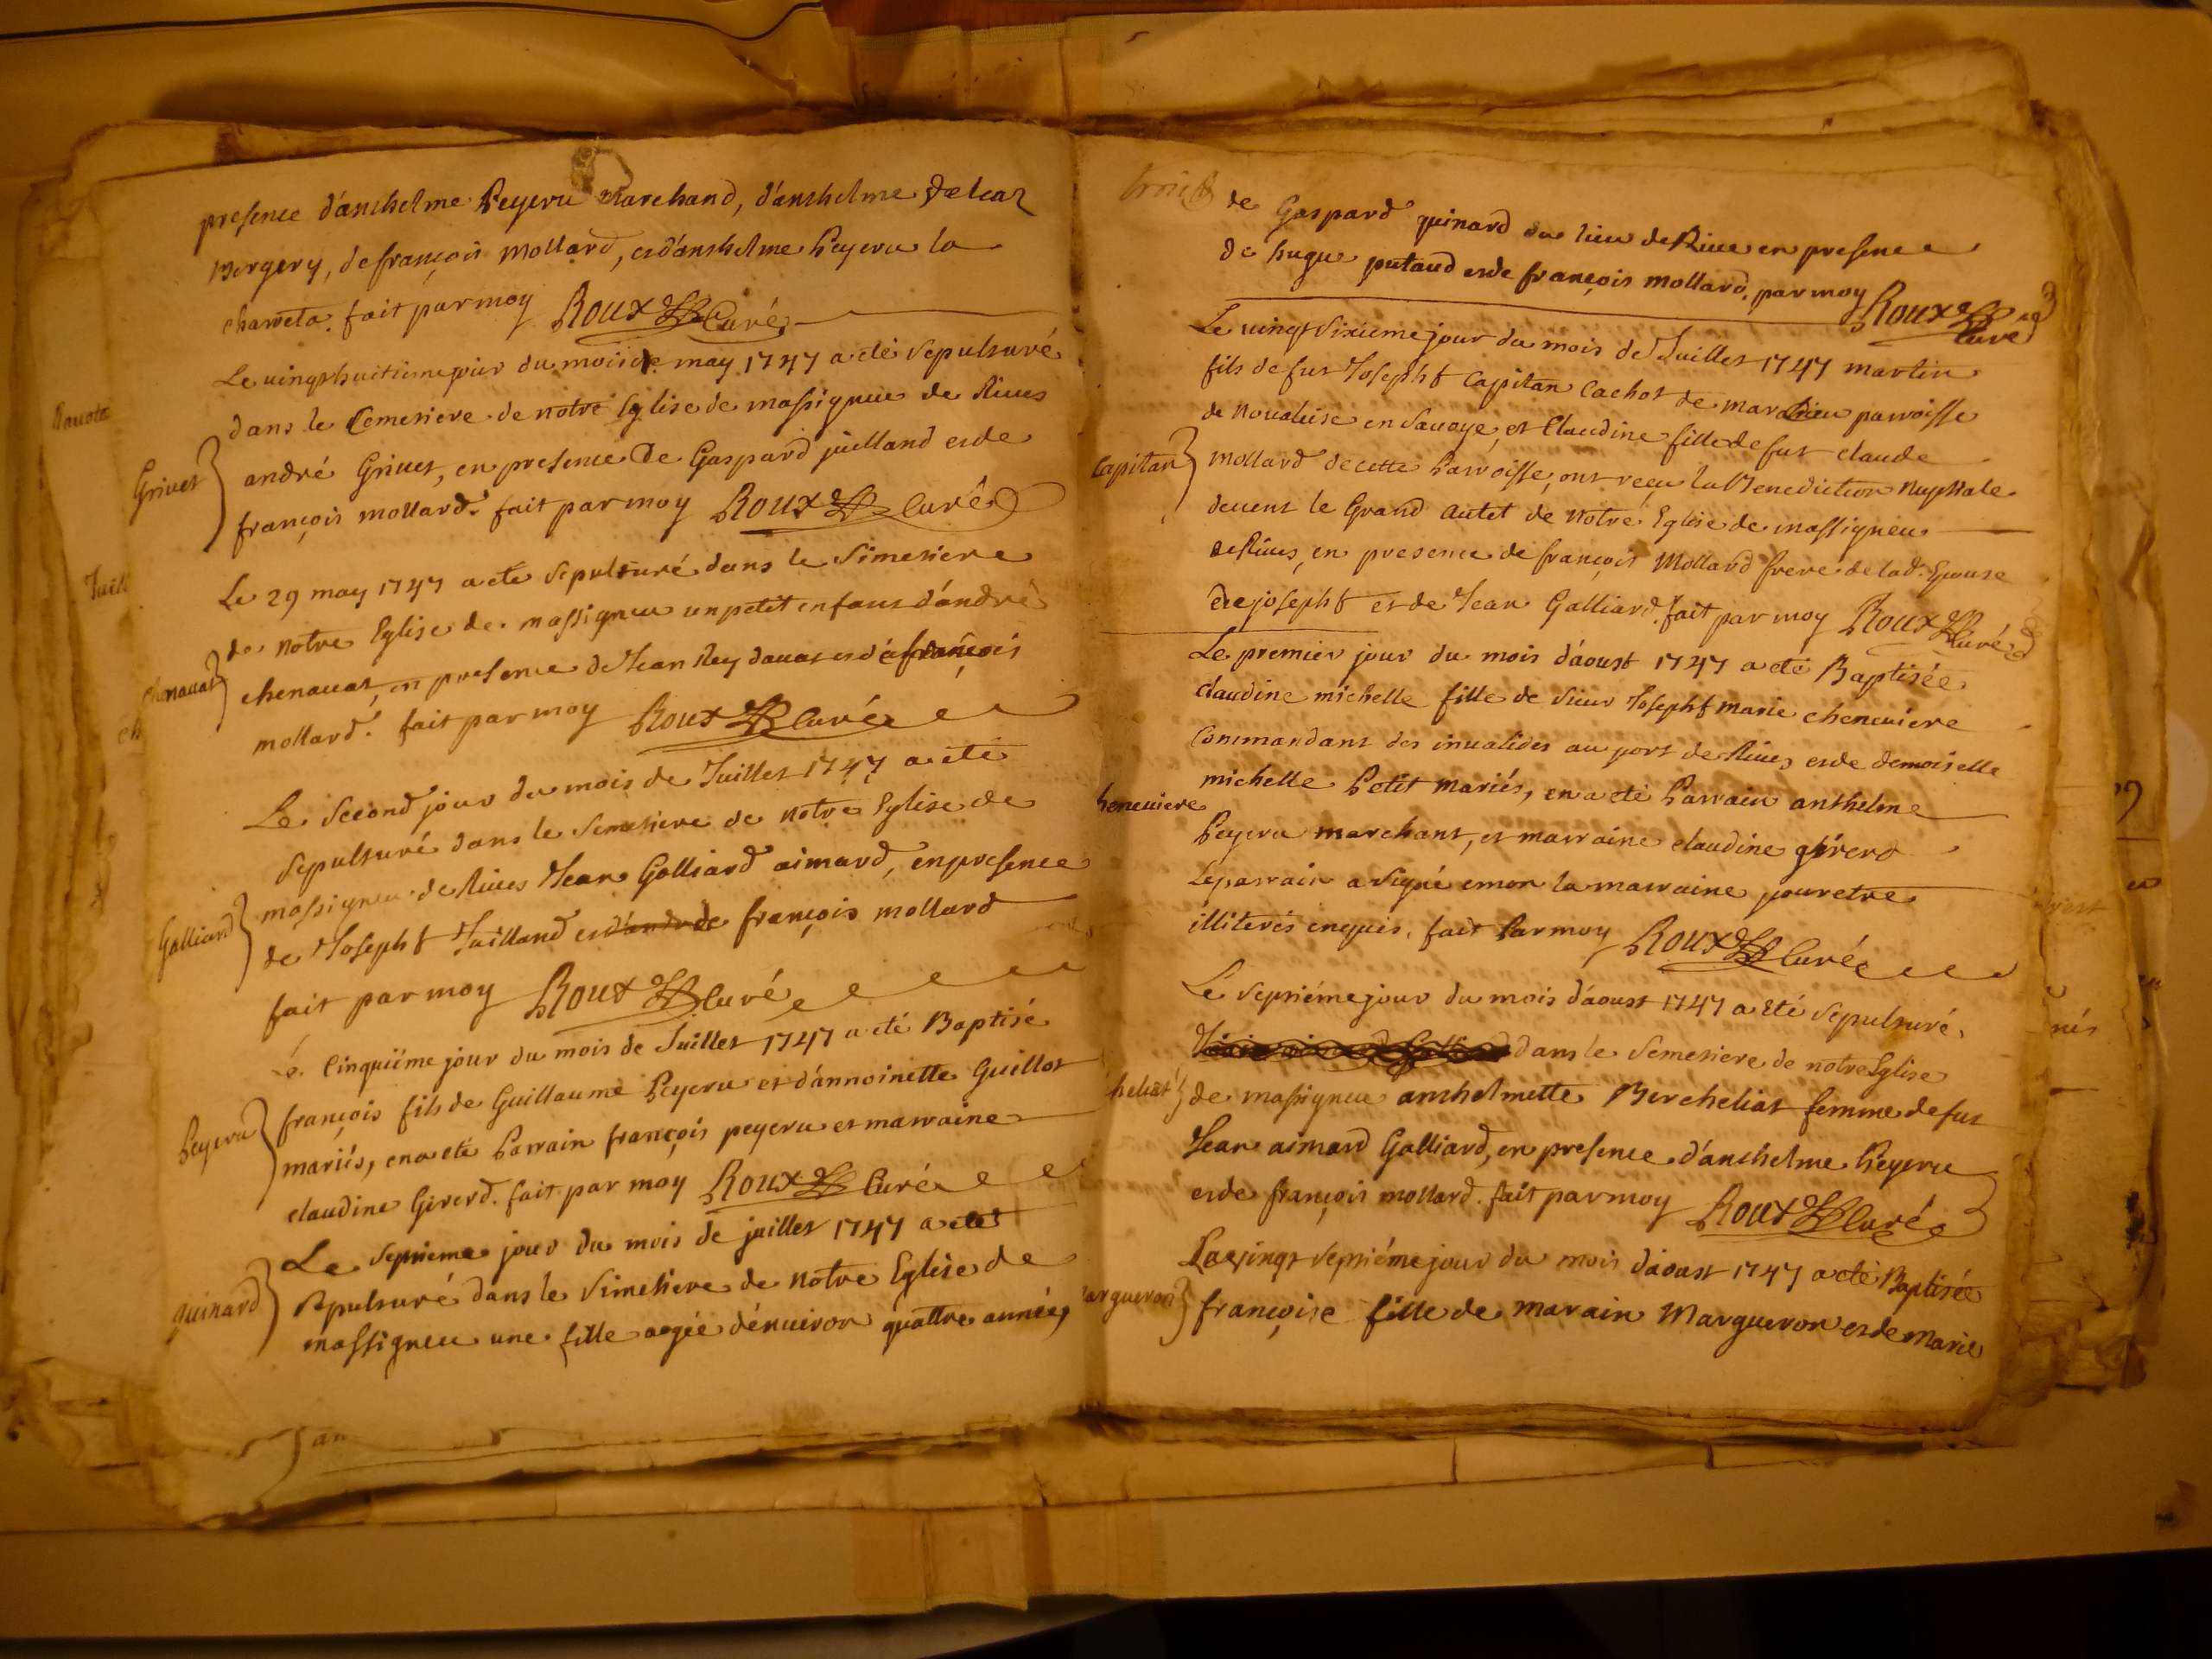 presence d'anthelme Peyeru Marchand, d'anthelme
Bergery, de françois Mollard, et d'anthelme Peyeru la
charreta. fait par moy Roux Curé
Le vingt huitieme jour du mois de may 1747 a eté sepulturé
dans le Cemetiere de notre Eglise de massigneu de Rives
Grivet
andré Grivet, en presence De Gaspard juilland et de
françois mollard. fait par moy Roux Curé
Le 29 may 1747 a eté sepulturé dans le simetiere
de notre Eglise de massigneu un petit enfant d'andré
chenavat
chenavat, en presence de Jean Rey davat et de françois
mollard. fait par moy Roux Curé
Le second jour du mois de Juillet 1747 a eté
sepulturé dans le Semetiere de notre Eglise de
massigneu de Rives Jean Galliard aimard, en presence
Galliard
de Joseph Juilland et de françois mollard
fait par moy Roux Curé
Cinquiéme jour du mois de Juillet 1747 a eté Baptisé
françois fils de Guillaume Peyeru et d'anthoinette Guillot
Peyeru
mariés, en a eté Parrain françois peyeru et marraine
claudine Girerd. fait par moy Roux Curé
Le septieme jour du mois de juillet 1747 a eté
quinard
sepulturé dans le Simetiere de notre Eglise de
massigneu une fille agée d'environ quattre années
de Gaspard quinard du lieu de Rive en presence
de hugue putaud et de françois mollard, par moy Roux Curé
Le vingt sixieme jour du mois de Juillet 1747 martin
fils de fut Joseph Capitan Cachot de marcieu parroisse
de Novalaise en Savoye, et Claudine fille de fut claude
Capitan
mollard de cette Parroisse, ont reçu la Benediction Nuptiale
devent le Grand Autel de Notre Eglise de massigneu
de Rives, en presence de françois Mollard frere de lad. Epouse
de joseph et de Jean Galliard. fait par moy Roux Curé
Le premier jour du mois d'aoust 1747 a eté Baptisée
claudine michelle fille de sieur Joseph marie cheneviere
Commandant des invalides au port de Rives et de demoiselle
michelle Petit mariés, en a eté Parrain anthelme
heneviere
Peyeru marchant, et marraine claudine girerd
Le parrain a signé e non la marraine pour etre
illiterés enquis. fait Par moy Roux Curé
Le septiéme jour du mois d'aoust 1747 a été sepulturé
dans le Semetiere de notre Eglise
heliat
de massigneu anthelmette Bercheliat femme de fut
Jean aimard Galliard, en presence d'anthelme Peyeru
et de françois mollard. fait par moy Roux Curé
Le vingt septiéme jour du mois d'aoust 1747 a eté Baptisée
argueron
françoise fille de marain Margueron et de Marie